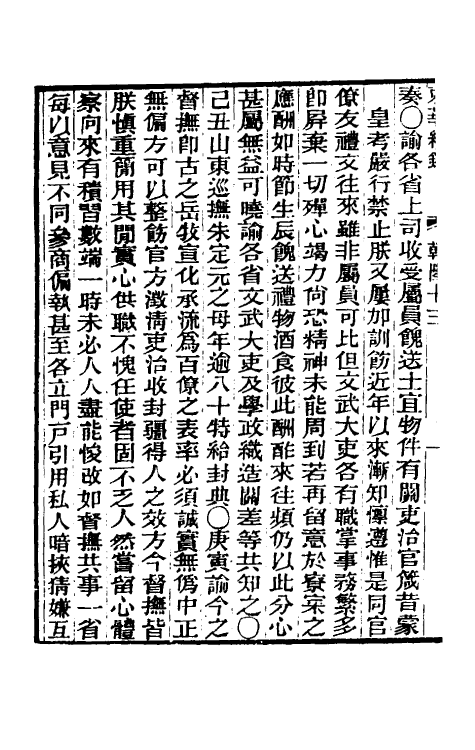 奏○諭各省上司收受屬員餽送土宜物件有關吏治官箴昔蒙
皇考嚴行禁止朕又屢加訓飭近年以來漸知懍遵惟是同官
僚友禮文往來雖非屬員可比但文武大吏各有職掌事務繁多
即屏棄一切殫心竭力尙恐精神未能周到若再留意於寮寀之
應酬如時節生辰餽送禮物酒食彼此酬酢來往頻仍以此分心
甚屬無益可曉諭各省文武大吏及學政織造關差等共知之○
己丑山東巡撫朱定元之母年逾八十特給封典○庚寅諭今之
督撫卽古之岳牧宣化承流爲百僚之表率必須誠實無僞中正
無偏方可以整飭官方澂清吏治收封疆得人之效方今督撫皆
朕愼重簡用其閒實心供職不愧任使者固不乏人然當留心體
察向來有積習數端一時未必人人盡能悛改如督撫共事一省
每以意見不同參商偏執甚至各立門戸引用私人暗挾猜嫌互